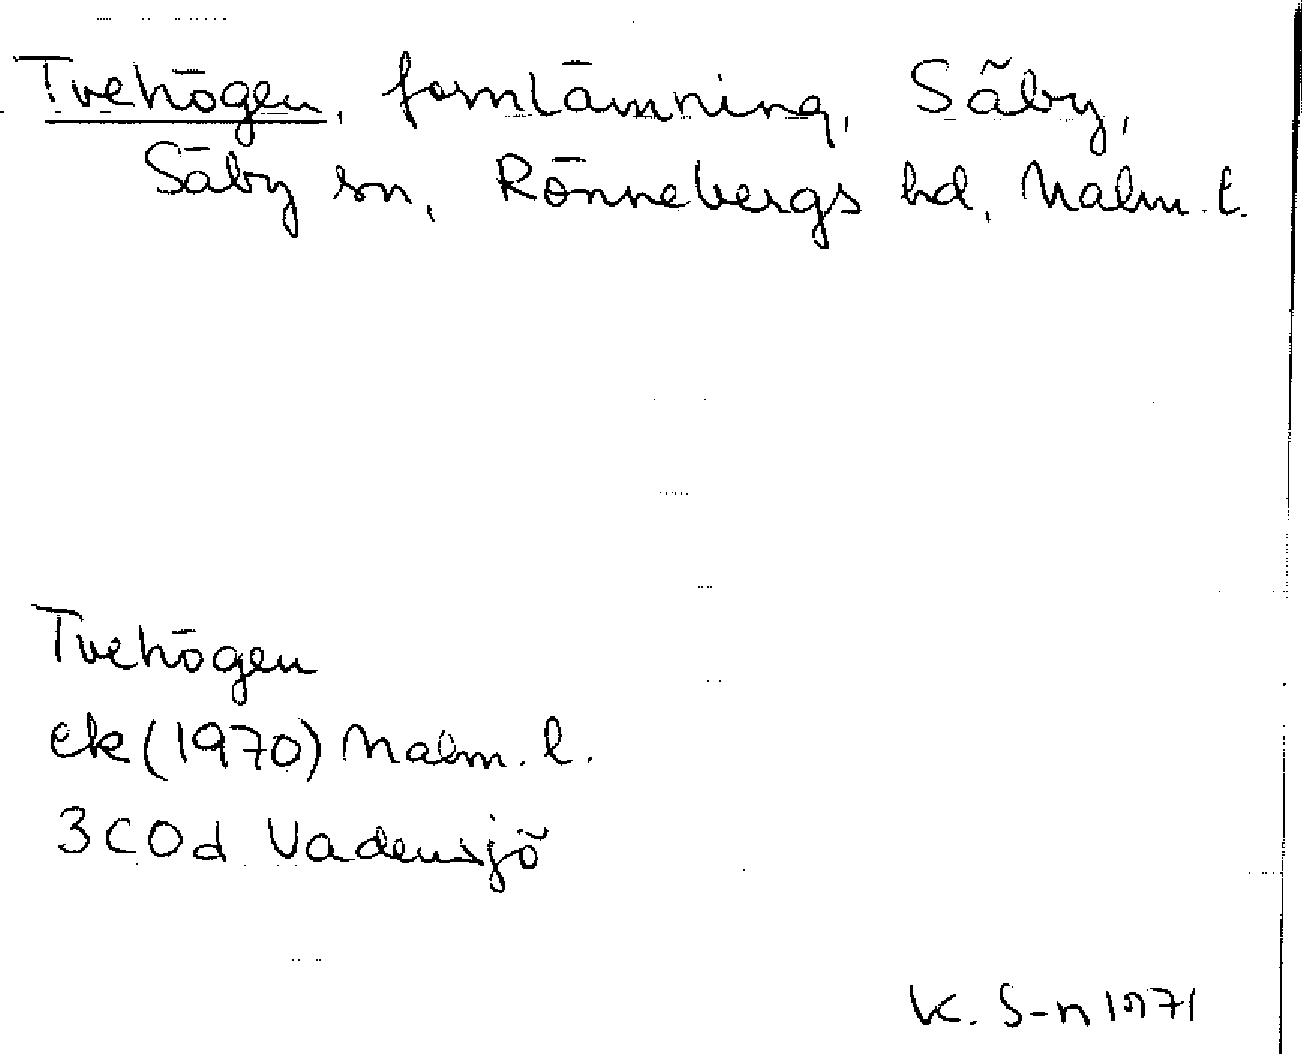 Tvehögen, fornlämning, Säby,
Säby sn, Rönnebergs hd, Malm. l.
Tvehögen
ek (1970) Malm. l.
3C0d Vadensjö
K. S-n 1971